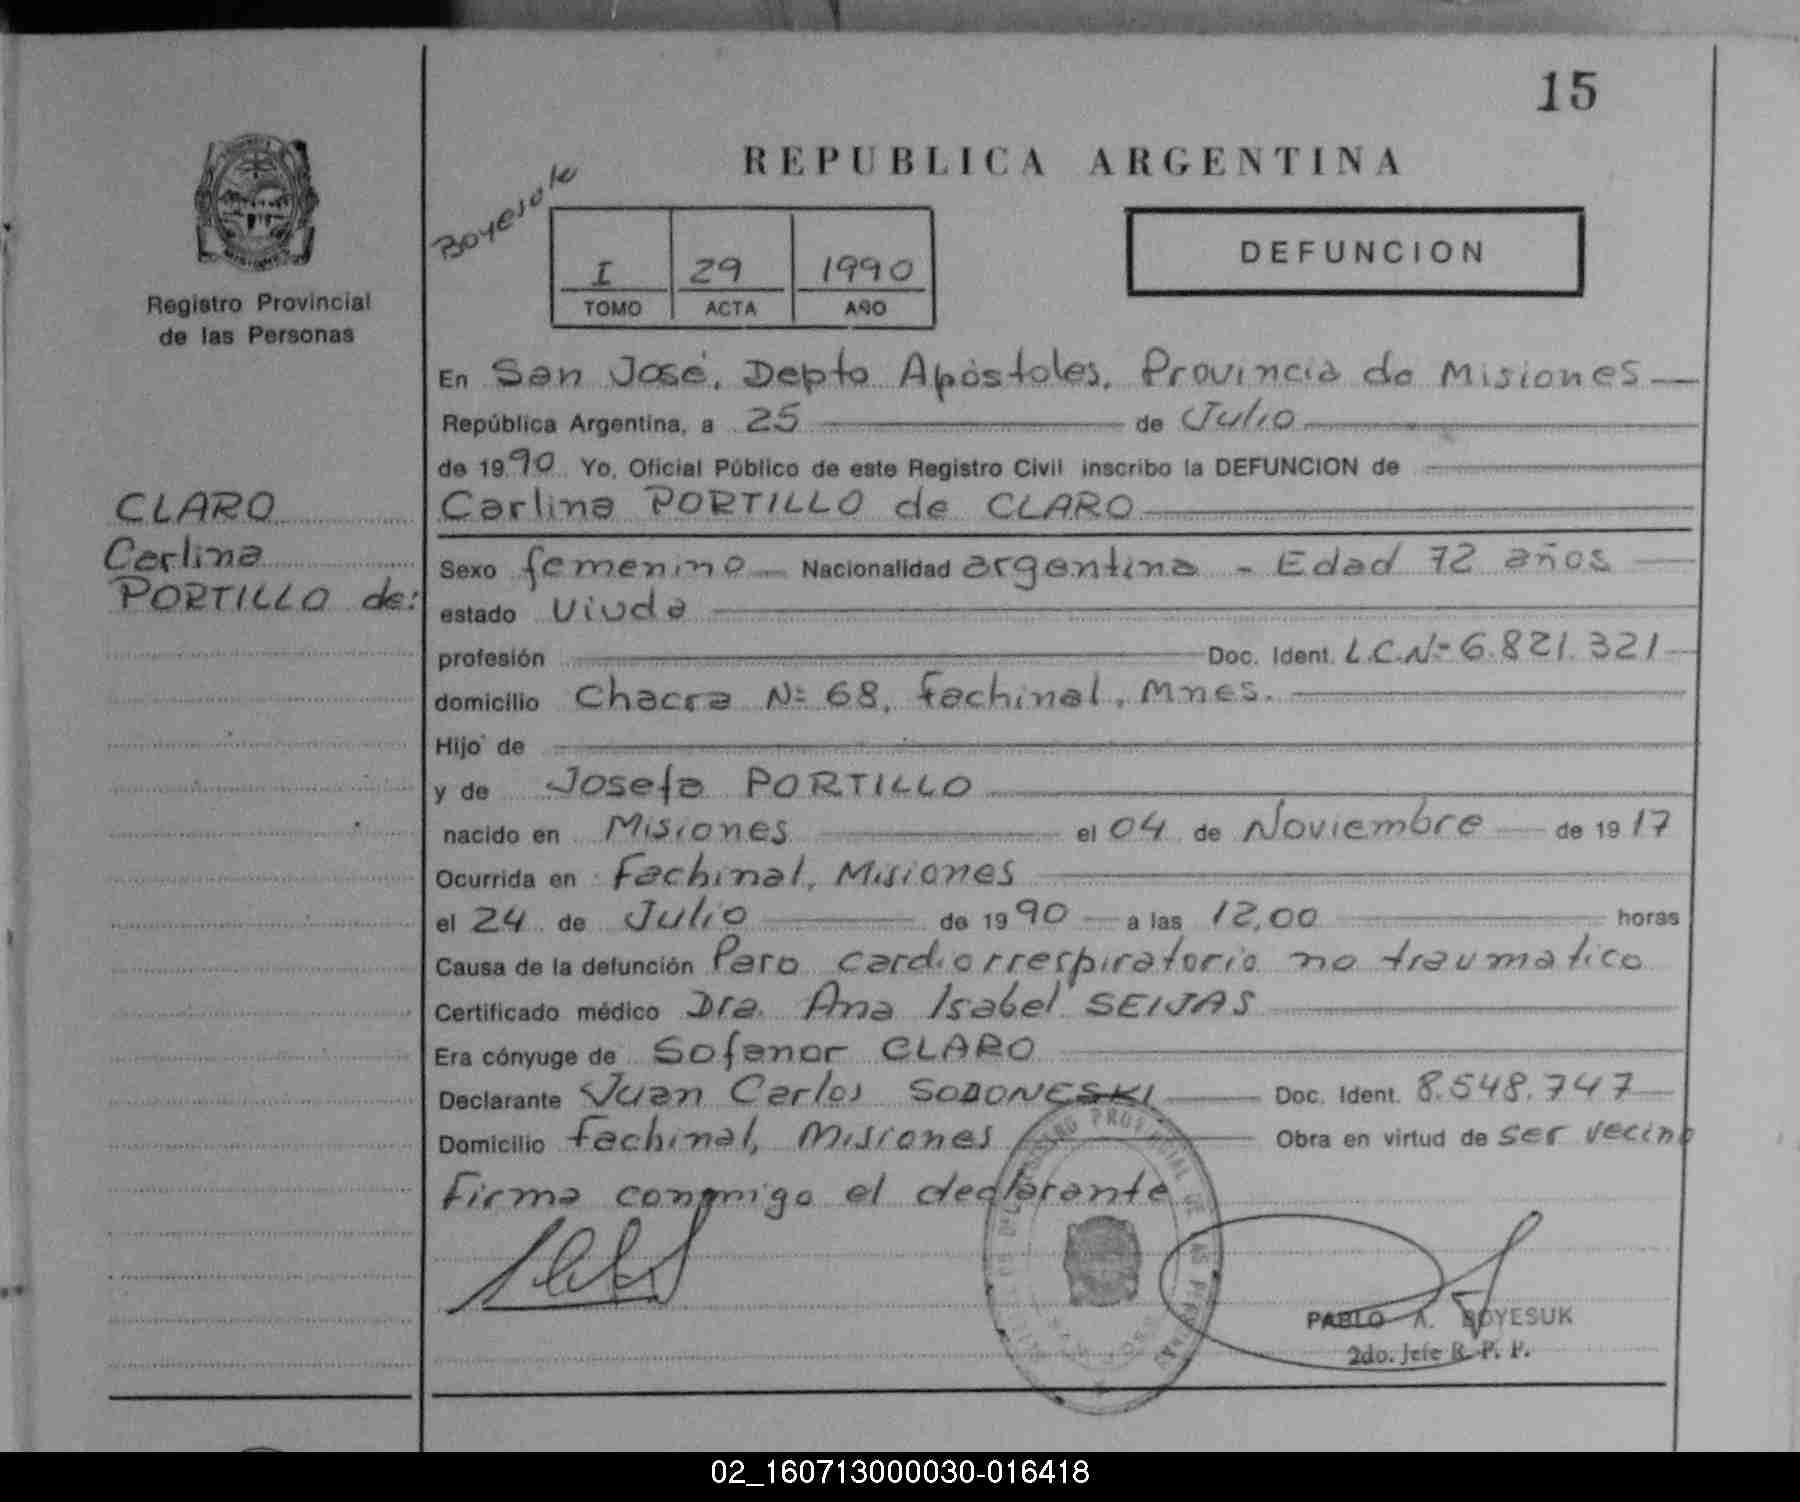 15
REPUBLICA ARGENTINA
Boyesuk
I 29 1990
TOMO ACTA AÑO
DEFUNCION
Registro Provincial
de las Personas
CLARO
Carlina
PORTILLO de:
En San José, Depto Apóstoles, Provincia de Misiones
República Argentina, a 25 de Julio
de 1990 Yo, Oficial Público de este Registro Civil inscribo la DEFUNCION de
Carlina PORTILLO de CLARO
Sexo femenino Nacionalidad argentina - Edad 72 años
estado Viuda
profesión Doc. Ident. L.C.Nº 6.821.321
domicilio Chacra Nº 68, Fachinal, Mnes.
Hijo de
y de Josefa PORTILLO
nacido en Misiones el 04 de Noviembre de 1917
Ocurrida en Fachinal, Misiones
el 24 de Julio de 1990 a las 12,00 horas
Causa de la defunción Paro cardiorrespiratorio no traumatico
Certificado médico Dra. Ana Isabel SEIJAS
Era cónyuge de Sofanor CLARO
Declarante Juan Carlos SODONESKI Doc. Ident. 8.548.747
Domicilio Fachinal, Misiones Obra en virtud de ser vecino
Firma conmigo el declarante
PABLO A. BOYESUK
2do. Jefe R. P. P.
02_160713000030-016418